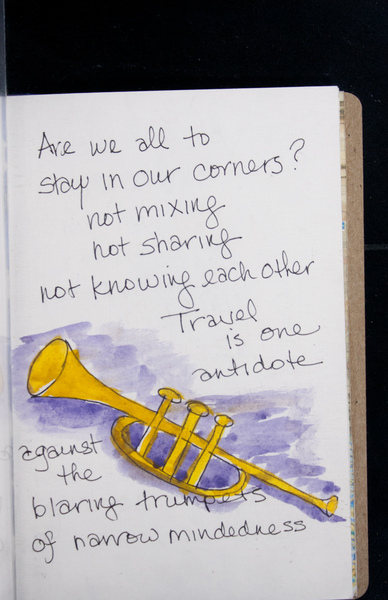 Are we all to
stay in our corners?
not mixing
not sharing
not knowing each other
Travel
is one
antidote
against
the
blaring trumpets
of narrow mindedness